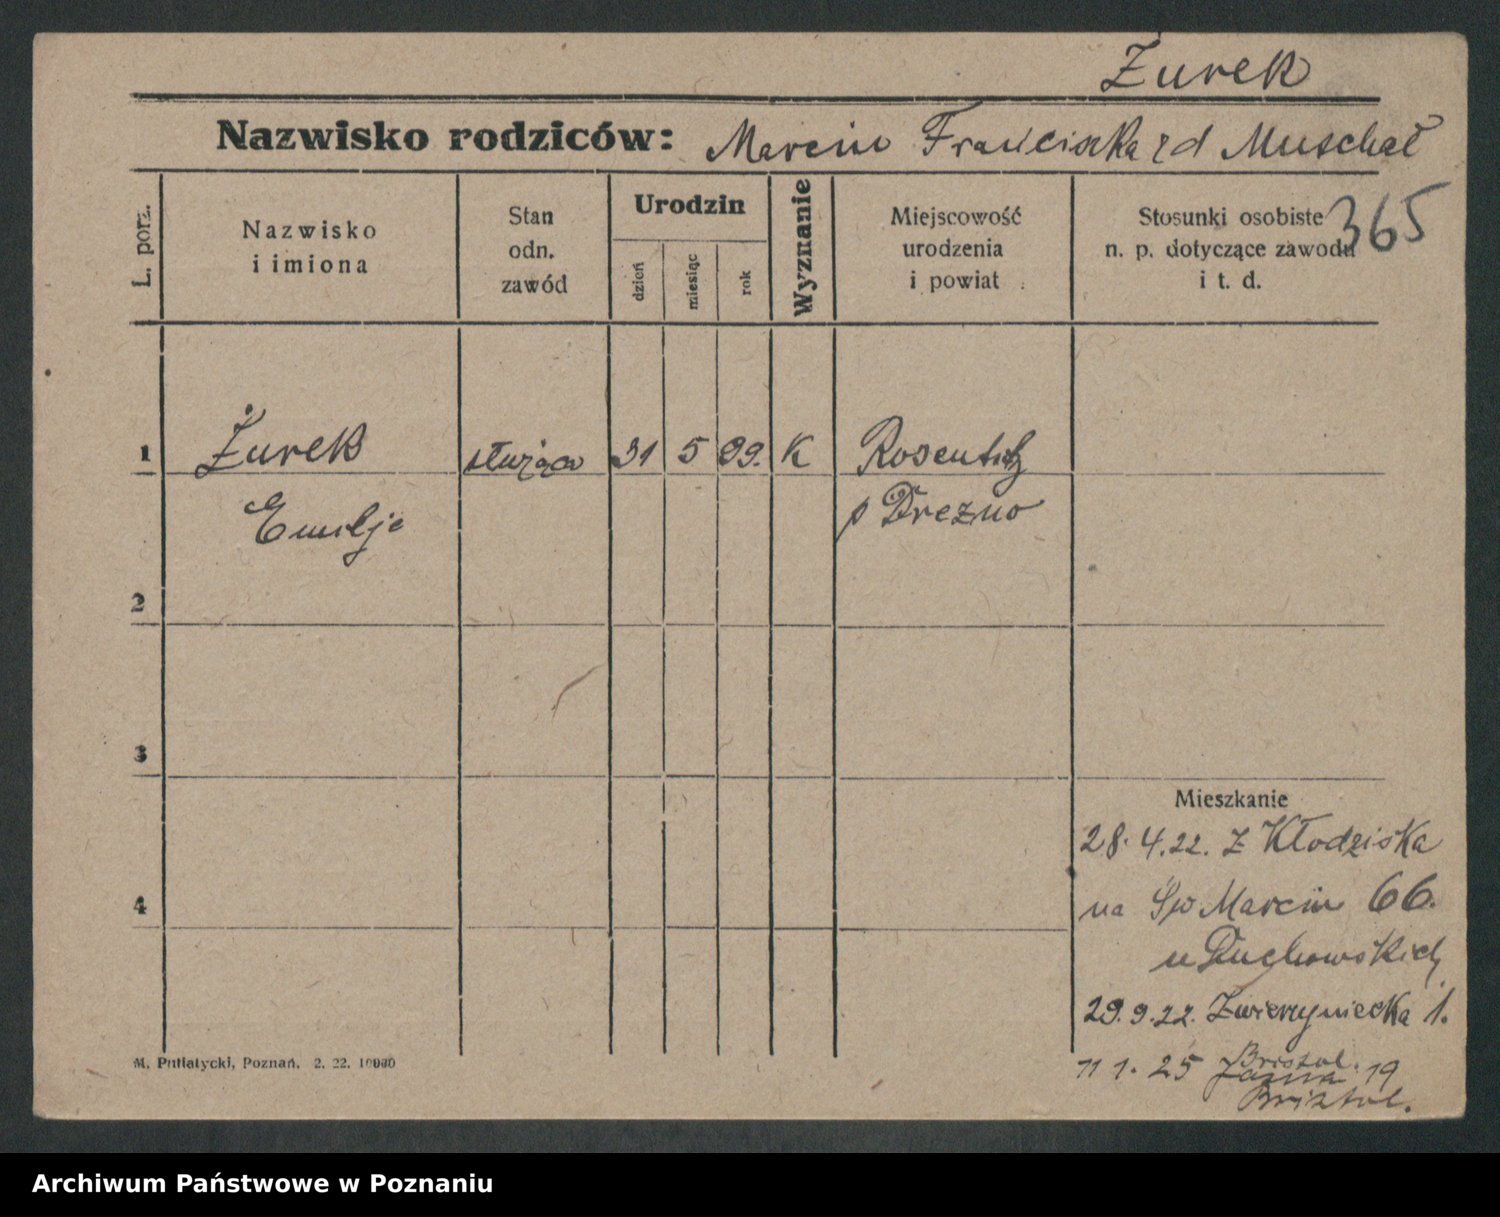 Żurek
Nazwisko rodziców: Marcin Franciszka zd Muschał
365
L. porz.
Nazwisko
i imiona
Stan
odn.
zawód
Urodzin
dzień
miesiąc
rok
Wyznanie
Miejscowość
urodzenia
i powiat
Stosunki osobiste
n. p. dotyczące zawodu
i t. d.
1 Żurek służąca 31 5 99. K
Emilje p Drezno
2
3
4
Mieszkanie
28. 4. 22. z Kłodziska
na Św Marcin 66.
u Duchowskich
29. 9. 22. Zwierzyniecka 1.
11 1. 25 Bristol. 19
Bristol.
M. Putiatycki, Poznań. 2. 22. 10000
Archiwum Państwowe w Poznaniu